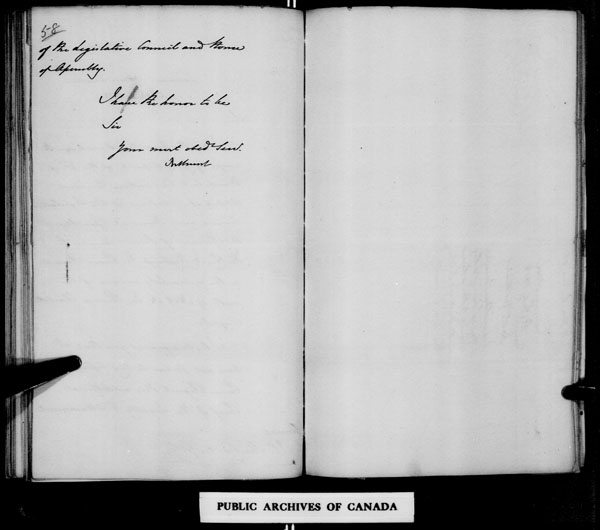 58
of the Legislative Council and House
of Assembly.
I have the honor to be
Sir
Your most obedt Servt.
PUBLIC ARCHIVES OF CANADA